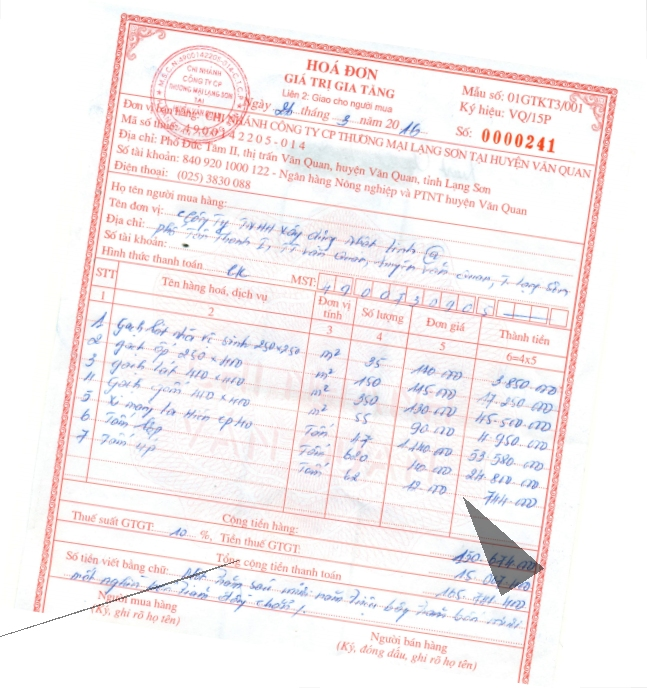 HOÁ ĐƠN
GIÁ TRỊ GIA TĂNG
Liên 2: Giao cho người mua
Ngày 26 tháng 3 năm 2016
Mẫu số: 01GTKT3/001
Ký hiệu: VQ/15P
Số: 0000241
CHI NHÁNH
CÔNG TY CP
THƯƠNG MẠI LẠNG SƠN
TẠI
Đơn vị bán hàng: CHI NHÁNH CÔNG TY CP THƯƠNG MẠI LẠNG SƠN TẠI HUYỆN VĂN QUAN
Mã số thuế: 4900142205-014
Địa chỉ: Phố Đức Tâm II, thị trấn Văn Quan, huyện Văn Quan, tỉnh Lạng Sơn
Số tài khoản: 840 920 1000 122 - Ngân hàng Nông nghiệp và PTNT huyện Văn Quan
Điện thoại: (025) 3830 088
Họ tên người mua hàng:
Tên đơn vị: Công ty TNHH Xây dựng
Địa chỉ: phố Tân Thanh I, TT Văn Quan, huyện Văn Quan, T. Lạng Sơn
Số tài khoản:
Hình thức thanh toán CK MST:
STT Tên hàng hoá, dịch vụ Đơn vị tính Số lượng Đơn giá Thành tiền
1 2 3 4 5 6=4x5
1 250x250 m² 35 110.000 3.850.000
2 gạch ốp 250 x 400 m² 150 115.000 17.250.000
3 gạch lát 400 x 400 m² 350 130.000 45.500.000
4 Gạch 400 x 400 m² 55 90.000 4.950.000
5 Xi măng Tấn 47 1.140.000 53.580.000
6 Tấm lợp Tấm 620 40.000 24.800.000
7 Tấm úp Tấm 62 12.000 744.000
Cộng tiền hàng: 150.674.000
Thuế suất GTGT: 10 %, Tiền thuế GTGT: 15.067.400
Tổng cộng tiền thanh toán 165.741.400
Số tiền viết bằng chữ: Một trăm sáu mươi năm triệu bảy trăm bốn mươi
một nghìn bốn trăm đồng chẵn /
Người mua hàng
(Ký, ghi rõ họ tên)
Người bán hàng
(Ký, đóng dấu, ghi rõ họ tên)